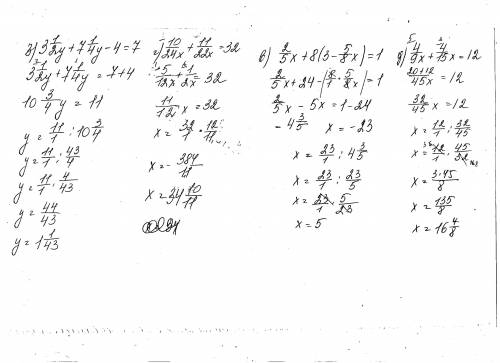 з) 3 1/2 y + 7 1/4 y - 4 = 7
3 1/2 y + 7 1/4 y = 7 + 4
10 3/4 y = 11
y = 11/1 : 10 3/4
y = 11/1 : 43/4
y = 11/1 · 4/43
y = 44/43
y = 1 1/43
г) 10/24x + 11/22x = 32
5/12x + 1/2x = 32
11/12 x = 32
x = 32/1 · 12/11
x = - 384/11
x = 34 10/11
в) 2/5 x + 8(3 - 5/8 x) = 1
2/5 x + 24 - (8/1 · 5/8 x) = 1
2/5 x - 5x = 1 - 24
- 4 3/5 x = -23
x = 23/1 : 4 3/5
x = 23/1 : 23/5
x = 23/1 · 5/23
x = 5
д) 4/9x + 4/15x = 12
20+12/45x = 12
32/45x = 12
x = 12/1 : 32/45
x = 12/1 · 45/32
x = 3·45/8
x = 135/8
x = 16 4/8